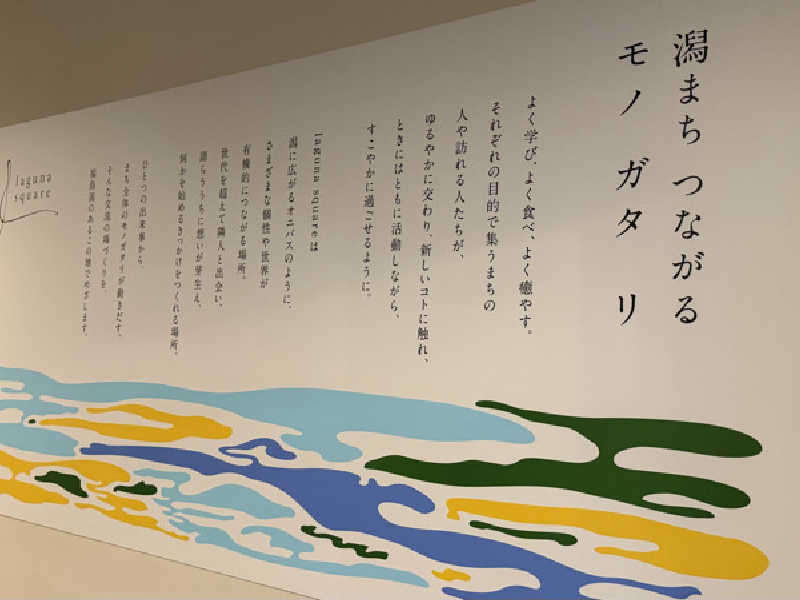 潟まち つながる
モノ ガタリ
よく学び、よく食べ、よく癒やす。
それぞれの目的で集うまちの
人や訪れる人たちが、
ゆるやかに交わり、新しいコトに触れ、
ときにはともに活動しながら、
すこやかに過ごせるように。
laguna squareは
潟に広がるオニバスのように、
さまざまな個性や世界が
有機的につながる場所。
世代を超えて隣人と出会い、
語らううちに想いが芽生え、
何かを始めるきっかけをつくれる場所。
ひとつの出来事から、
まち全体のモノガタリが動きだす、
そんな交流の場づくりを、
福島潟のあるこの地でめざします。
laguna
square